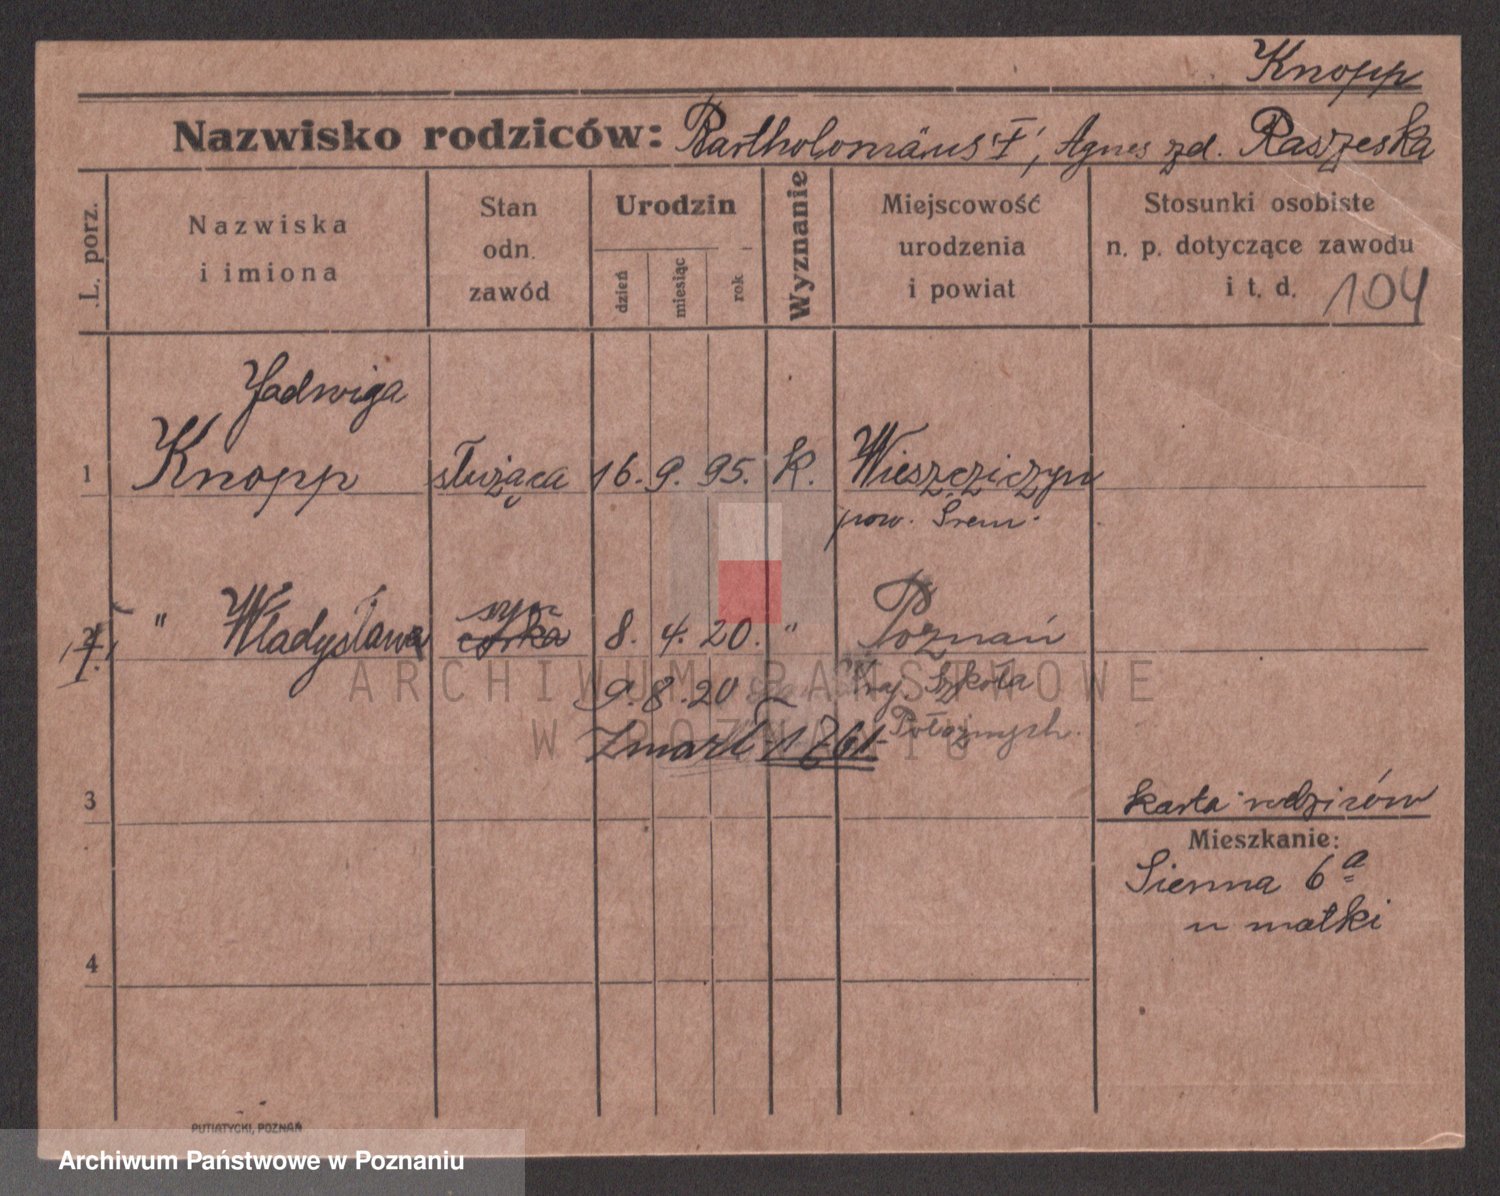 Knopp
Nazwisko rodziców: Bartholomäus †, Agnes zd. Raszeska
L. porz.
Nazwiska
i imiona
Stan
odn.
zawód
Urodzin
dzień
miesiąc
rok
Wyznanie
Miejscowość
urodzenia
i powiat
Stosunki osobiste
n. p. dotyczące zawodu
i t. d. 104
Jadwiga
1 Knopp służąca 16. 9. 95. k. Wieszcziczyn
pow. Śrem.
syn
2 " Władysława córka 8. 4. 20. " Poznań
9. 8. 20 Szkoła
Zmarł 1761 Położnych.
3
karta rodziców
Mieszkanie:
Sienna 6a
u matki
4
PUTIATYCKI, POZNAŃ
ARCHIWUM PAŃSTWOWE
W POZNANIU
Archiwum Państwowe w Poznaniu